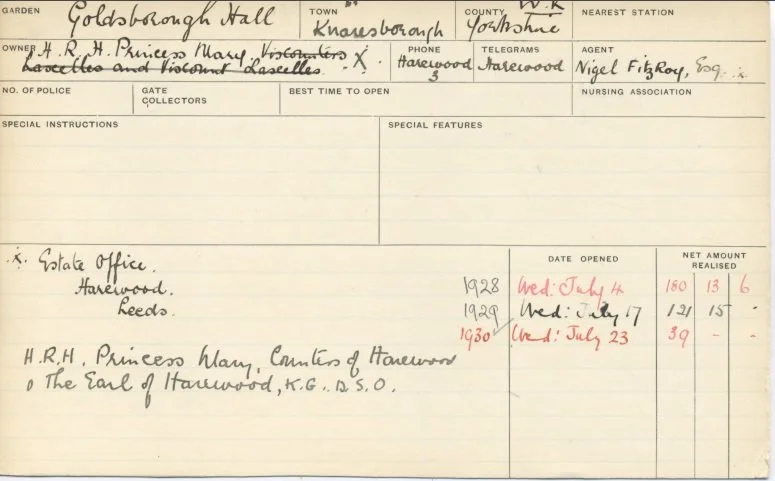 GARDEN Goldsborough Hall TOWN Knaresborough COUNTY W.R. Yorkshire NEAREST STATION
OWNER H.R.H. Princess Mary, Viscountess Lascelles and Viscount Lascelles. X. PHONE Harewood 3 TELEGRAMS Harewood AGENT Nigel FitzRoy, Esq. x.
NO. OF POLICE GATE COLLECTORS BEST TIME TO OPEN NURSING ASSOCIATION
SPECIAL INSTRUCTIONS SPECIAL FEATURES
DATE OPENED NET AMOUNT REALISED
x. Estate Office.
Harewood. 1928 Wed: July 4 180 13 6
Leeds. 1929 Wed: July 17 121 15 -
1930 Wed: July 23 39 - -
H.R.H. Princess Mary, Countess of Harewood
The Earl of Harewood, K.G. D.S.O.